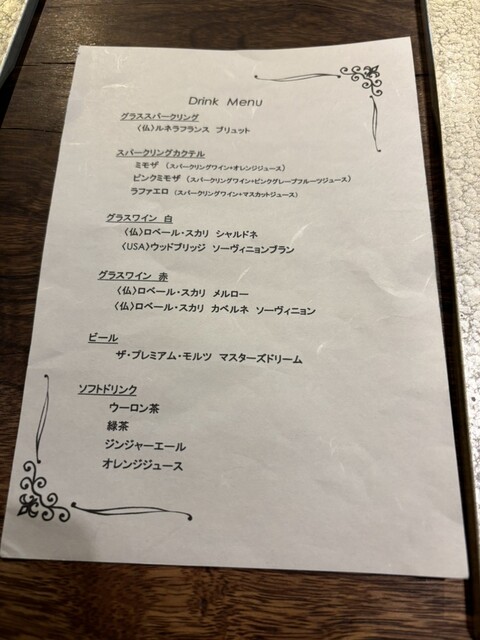 Drink Menu
グラススパークリング
〈仏〉ルネラフランス ブリュット
スパークリングカクテル
ミモザ (スパークリングワイン+オレンジジュース)
ピンクミモザ (スパークリングワイン+ピンクグレープフルーツジュース)
ラファエロ (スパークリングワイン+マスカットジュース)
グラスワイン 白
〈仏〉ロベール・スカリ シャルドネ
〈USA〉ウッドブリッジ ソーヴィニョンブラン
グラスワイン 赤
〈仏〉ロベール・スカリ メルロー
〈仏〉ロベール・スカリ カベルネ ソーヴィニョン
ビール
ザ・プレミアム・モルツ マスターズドリーム
ソフトドリンク
ウーロン茶
緑茶
ジンジャーエール
オレンジジュース